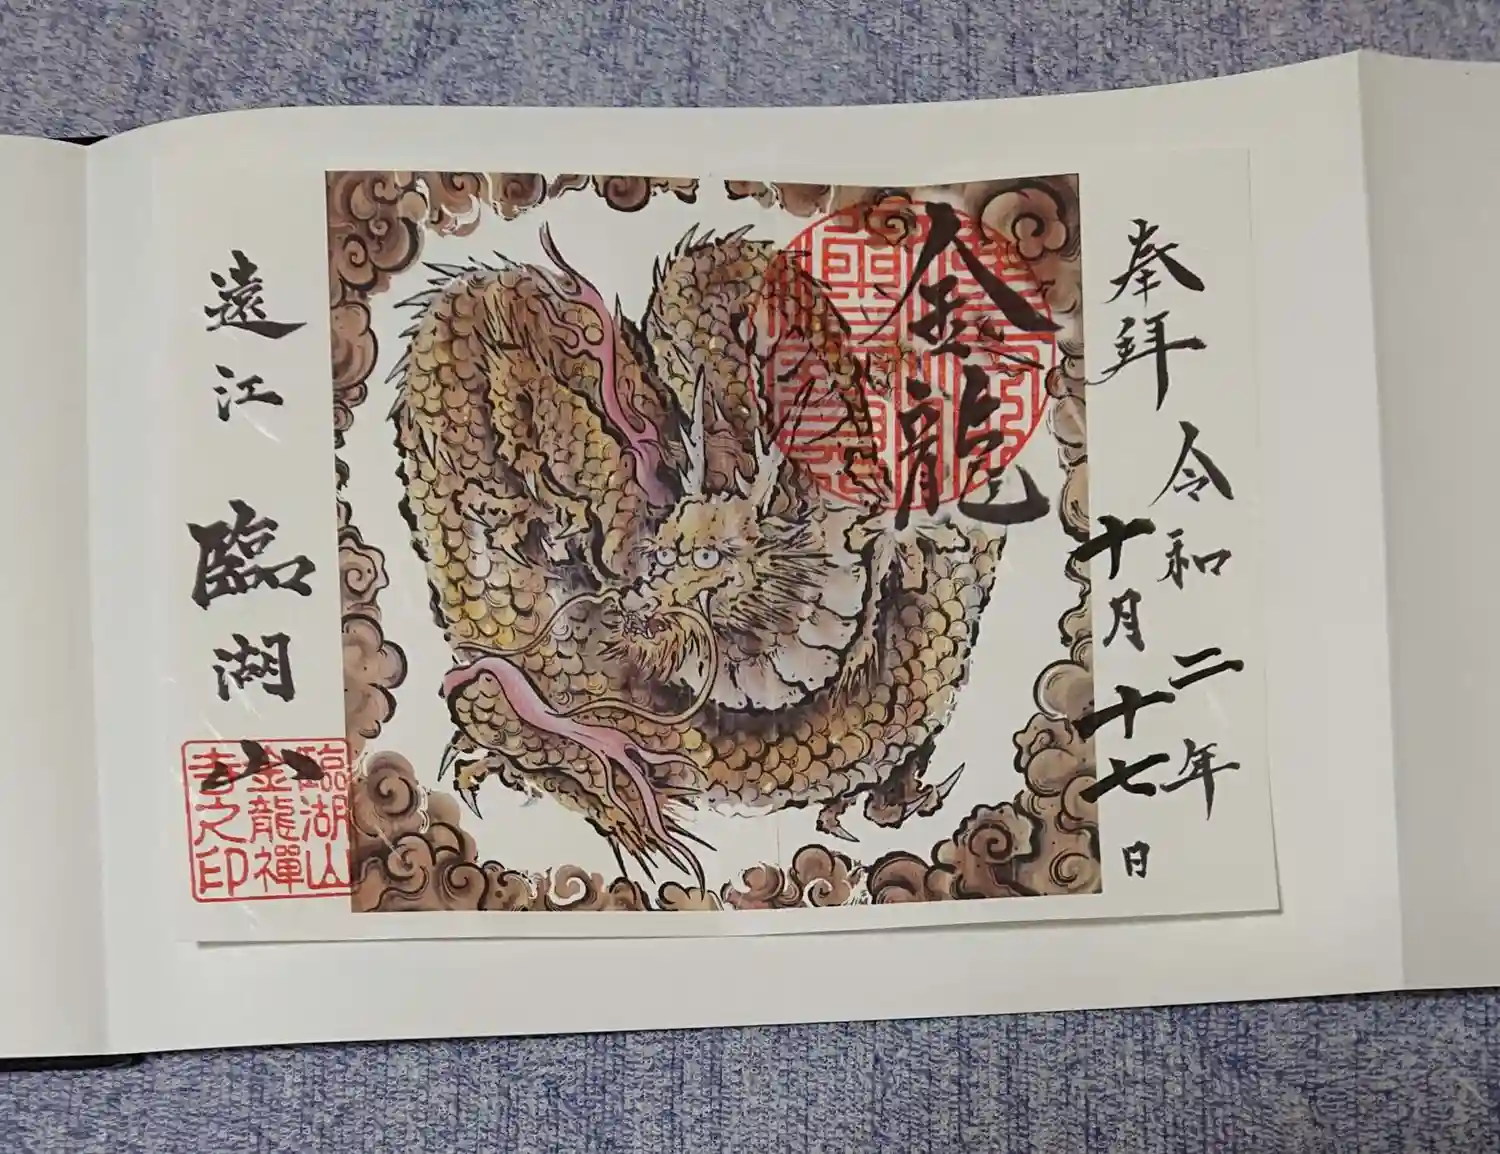 奉拜
令和二年
十月十七日
金龍
遠江
臨湖山
臨湖山
金龍禪
寺之印